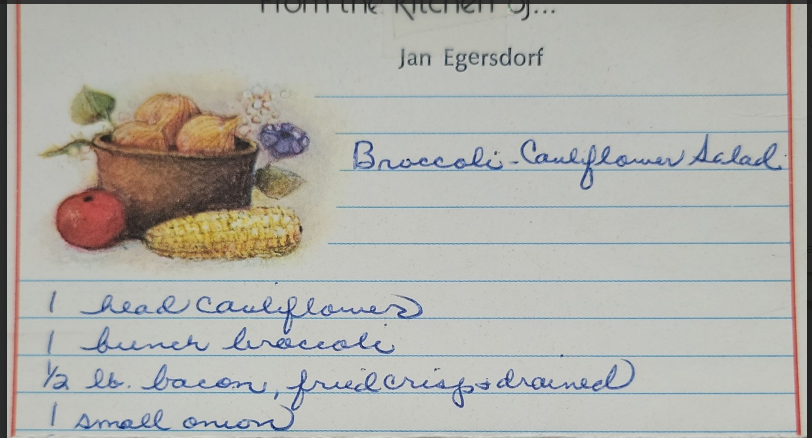 From the Kitchen of...
Jan Egersdorf
Broccoli-Cauliflower Salad
1 head cauliflower
1 bunch broccoli
1/2 lb. bacon, fried crisp + drained
1 small onion